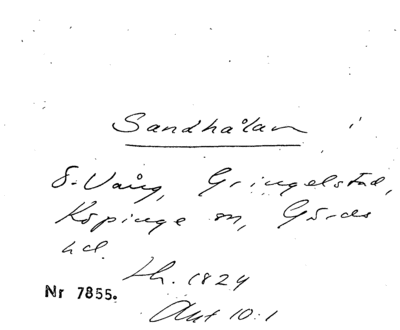 Sandhålan i
S. Vång, Gringelstad,
Köpinge sn, Gärds
hd.
Lh. 1824
Nr 7855.
Akt 10:1